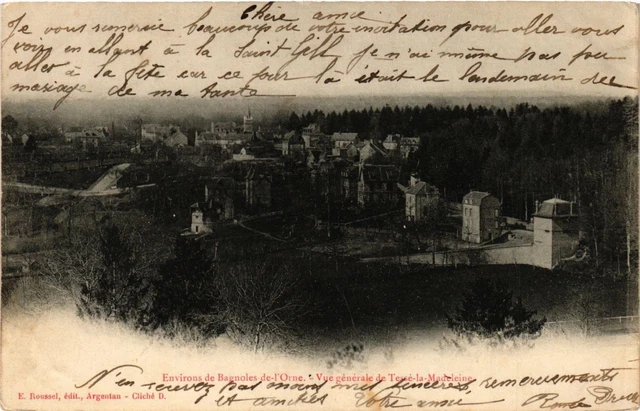 Chère amie
Je vous remercie beaucoup de votre invitation pour aller vous
voir en allant à la Saint Gilles Je n'ai même pas pu
aller à la fête car ce jour la était le lendemain du
mariage de ma tante
Environs de Bagnoles-de-l'Orne. - Vue générale de Tessé-la-Madeleine
N'en recevez pas moins mes sincères remerciements
et amitiés Votre amie
E. Roussel, édit., Argentan - Cliché D.